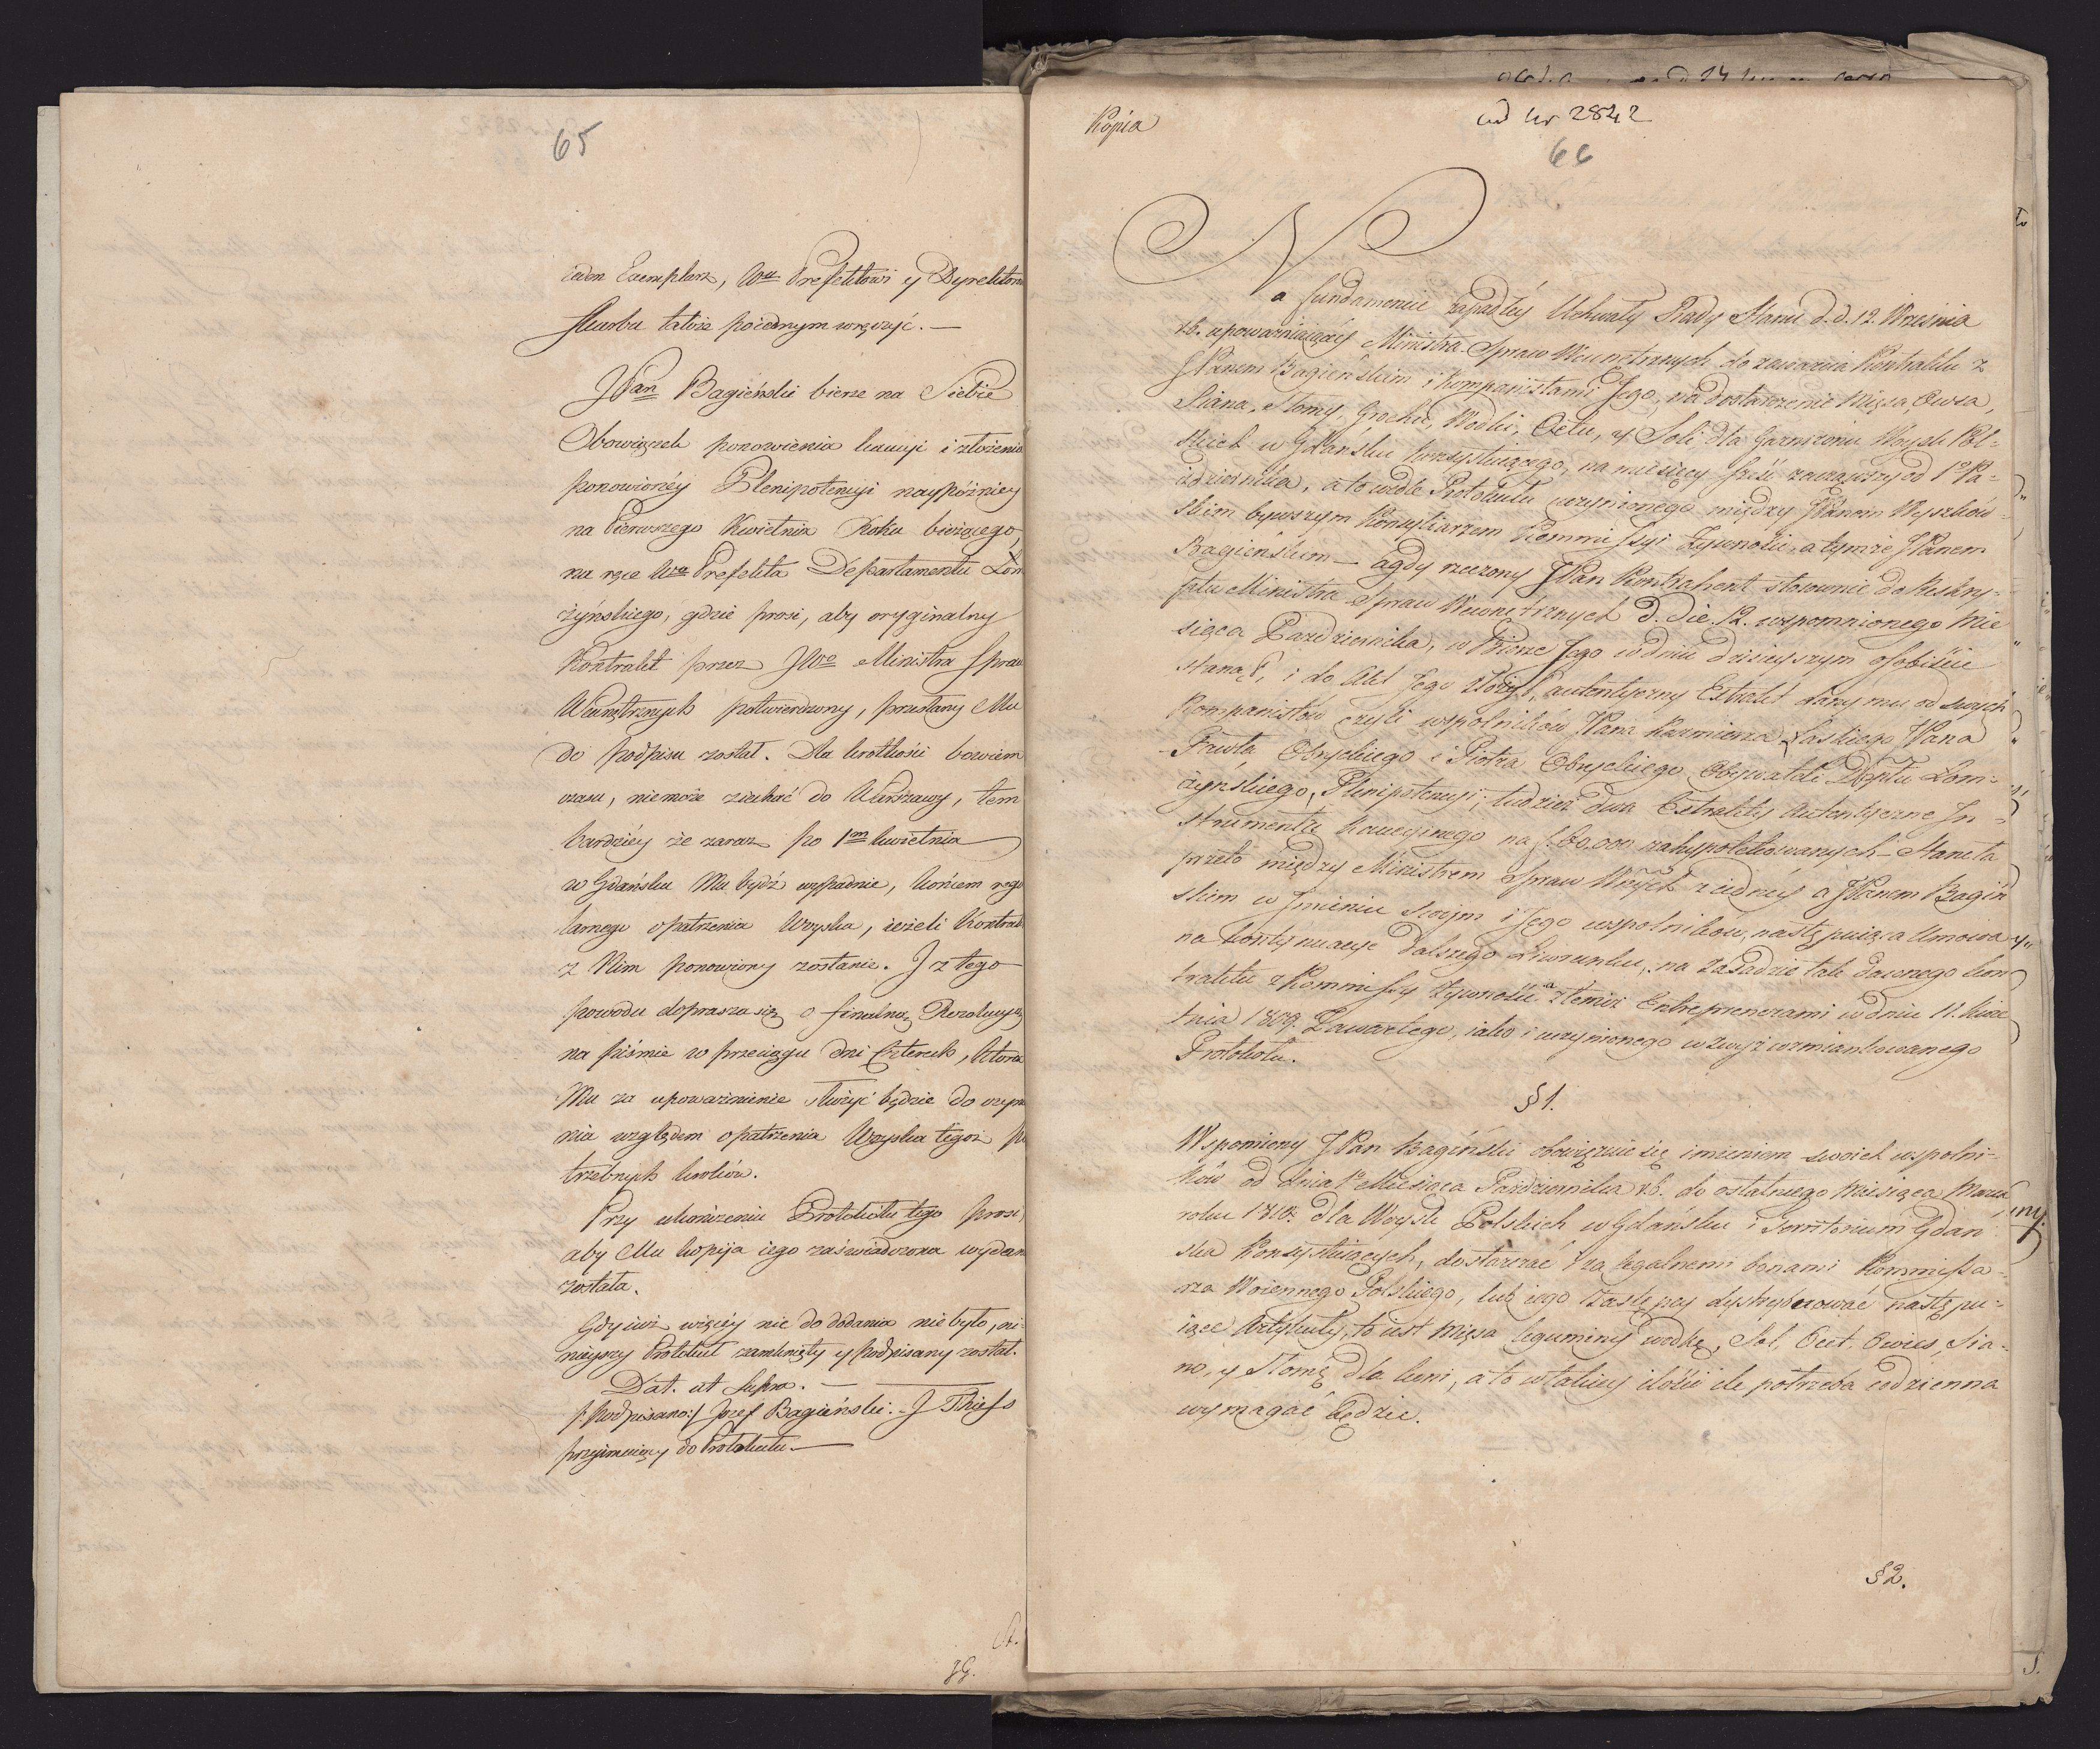 65
ieden Exemplarz, Wu Prefektowi y Dyrektoro
Skarbu także poiednym wręczyć. —
JPan Bagieński bierze na Siebie
Obowiązek ponowienia kaucyi i złożenia
ponowionéy Plenipotencyi naypóźniey
na Pierwszego Kwietnia Roku bieżącego,
na ręce Wo Prefekta Departamentu Łom
żyńskiego, gdzie prosi, aby oryginalny
Kontrakt przez JWo Ministra Spraw
Wewnętrznych potwierdzony, przesłany Mu
do podpisu został. Dla krótkości bowiem
czasu, niemoże ziechać do Warszawy, tem
bardziéy że zaraz po 1m kwietnia
w Gdańsku Mu bydź wypadnie, końcem regu
larnego opatrzenia Woyska, ieżeli Kontrakt
z Nim ponowiony zostanie. J z tego
powodu doprasza się o finalną Rezolucyą
na piśmie w przeciągu dni Czterech, która
Mu za upoważnienie służyć będzie do czynie
nia względem opatrzenia Woyska tegoż po
trzebnych kroków.
Przy ukończeniu Protokółu tego prosi,
aby Mu kopija iego zaświadczona wydana
została.
Gdy iuż więcéy nic do dodania nie było, ni
nieyszy Protokuł zamknięty y podpisany został.
Dat. ut Supra. —
/:podpisano:/ Jozef Bagieński. — J Thiess
przyimuiący do Protokułu —
Kopia
ad Nr 2842
66
Na fundamencie zapadłéy Uchwały Rady Stanu d.d. 12. Września
r.b. upoważniaiącéy Ministra Spraw Wewnętrznych do zawarcia Kontraktu z
JPanem Bagieńskim i kompanistami Jego, na dostarczenie Mięsa, Owsa,
Siana, Słomy, Grochu, Wodki, Octu, y Soli dla Garnizonu Woysk Pol-
skich w Gdańsku konsystuiącego, na miesięcy sześć zacząwszy od 1o Pa-
ździernika, a to wedle Protokułu uczynionego między JPanem Wyszków-
skim bywszym Konsyliarzem Kommissyi Żywności, a tymże JPanem
Bagieńskim — agdy rzeczony JPan Kontrahent stosownie do Reskry-
ptu Ministra Spraw Wewnętrznych d. die. 12. wspomnionego Mie
siąca Października, w Biórze Jego w dniu dzisieyszym osobiście
stanął, i do Akt Jego złożył, autentyczny Extrakt dany mu od swych
Kompanistów czyli wspólników JPana Kazmierza Łaskiego JPana
Pawła Obryckiego i Piotra Obryckiego Obywateli Dptu Łom-
żyńskiego, Plenipotencyi, tudzież dwa Extrakty Autentyczne Jn-
strumentu kaucyinego na f. 60,000 zahypotekowanych — Stanęła
przeto między Ministrem Spraw Wnych z iednéy a JPanem Bagień
skim w Jmieniu swojm i Jego wspolnikow, następuiąca Umowa
na kontynuacye dalszego Liwerunku, na zasadzie tak dawnego kon
traktu z Kommissyą Żywności a temiż Entreprenerami w dniu 11. Kwie
tnia 1809. Zawartego, iako i uczynionego wzwyż wzmiankowanego
Protokołu.
§ 1.
Wspomiony JPan Bagiński obowięzuie się imieniem swoich wspolni-
ków od dnia 1o Miesiąca Października r.b. do ostatniego Miesiąca Marca
roku 1810. dla Woysk Polskich w Gdańsku i Territorium Gdań
ska Konsystuiących, dostarzać za legalnemi bonami Kommissa-
rza Woiennego Polskiego, lub iego zastępcy dystrybuować następu-
iące Artykuły, to iest Mięsa leguminy wodkę, Sól, Ocet, Owies, Sia-
no, y Słomę dla koni, a to w takiey ilości ile potrzeba codzienna
wymagać będzie.
§ 2.